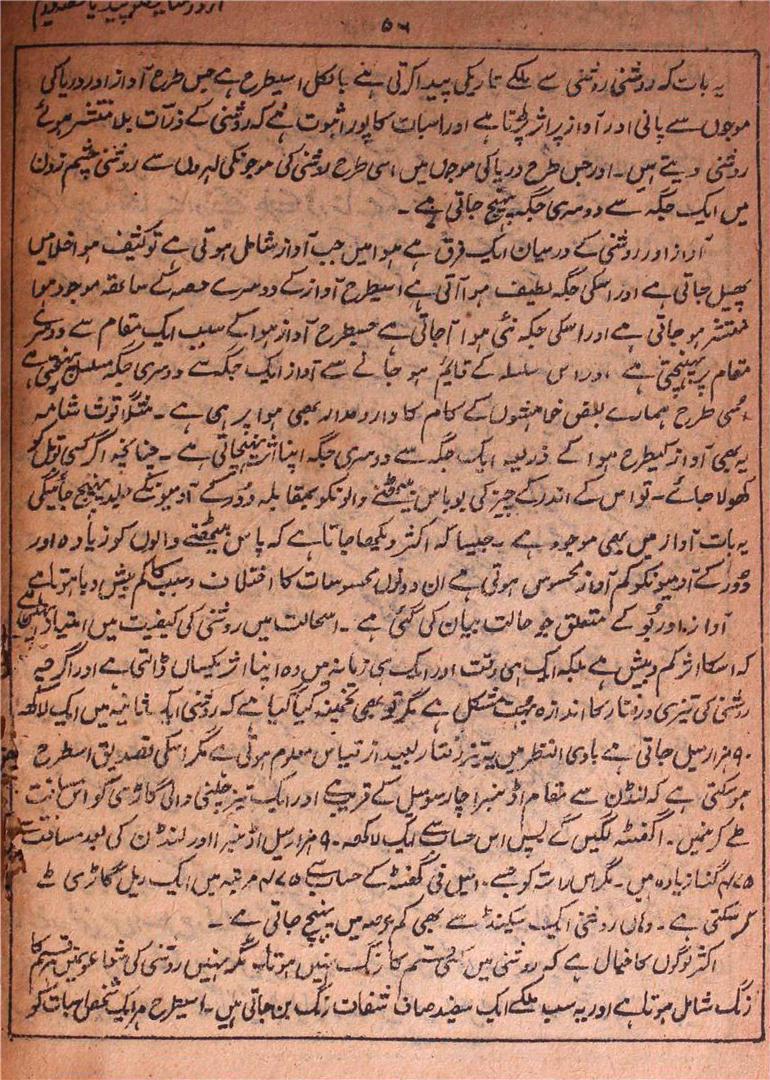 ۵۶
یہ بات کہ روشنی روشنی سے ملکے تاریکی پیدا کرتی ہے بالکل اسیطرح ہے جس طرح آواز اور دریا کی
موجوں سے پانی اور آواز پر اثر پہنچتا ہے اور اسبات کا پورا ثبوت ہے کہ روشنی کے ذرات بلا منتشر ہوئے
روشنی دیتے ہیں۔ اور جس طرح دریا کی موجوں میں اسی طرح روشنی کی موجونکی لہروں سے روشنی چشم زدن
میں ایک جگہ سے دوسری جگہ پہنچ جاتی ہے۔
آواز اور روشنی کے درمیان ایک فرق ہے ہوا میں جب آواز شامل ہوتی ہے تو کثیف ہوا خلا میں
پھیل جاتی ہے اور اسکی جگہ لطیف ہوا آتی ہے اسیطرح آواز کے دوسرے حصہ کے ساتھ موجود ہوا
منتشر ہو جاتی ہے اور اسکی جگہ نئی ہوا آجاتی ہے جسطرح آواز ہوا کے سبب ایک مقام سے دوسرے
مقام پر پہنچتی ہے اور اس سلسلہ کے قایم ہو جانے سے آواز ایک جگہ سے دوسری جگہ مسلسل پہنچتی ہے
اسی طرح ہمارے بعض خامشوں کے کام کا دار و مدار بھی ہوا پر ہی ہے۔ مثلاً قوت شامہ
یہ بھی آواز کیطرح ہوا کے ذریعہ ایک جگہ سے دوسری جگہ اپنا اثر پہنچاتی ہے۔ چنانچہ اگر کسی بوتل کو
کھولا جائے۔ تو اس کے اندر کے چیز کی بو پاس بیٹھنے والونکو بمقابلہ دور کے آدمیونکے جلد پہنچ جائیگی
یہ بات آواز میں بھی موجود ہے۔ جیسا کہ اکثر دیکھا جاتا ہے کہ پاس بیٹھنے والوں کو زیادہ اور
دور کے آدمیونکو کم آواز محسوس ہوتی ہے ان دونوں محسوسات کا اختلاف و سبب کم بیش دیا ہوتا ہے
آواز اور بو کے متعلق جو حالت بیان کی گئی ہے۔ اسحالت میں روشنی کی کیفیت میں امتیاز یہ
کہ اسکا اثر کم و بیش ہے بلکہ ایک ہی وقت اور ایک ہی زمانہ میں وہ اپنا اثر یکساں ڈالتی ہے اور اگرچہ
روشنی کی تیزی و رفتار کا اندازہ بہت مشکل ہے مگر تو بھی تخمینہ کیا گیا ہے کہ روشنی ایک ثانیہ میں ایک لاکھ
۹۰ ہزار میل جاتی ہے بادی النظر میں یہ تیز رفتار بعید از قیاس معلوم ہوتی ہے مگر اسکی تصدیق اسطرح
ہو سکتی ہے کہ لنڈن سے مقام اڈنبرا چار سو میل کے قریب ہے اور ایک تیز چلنے والی گاڑی کو اس مسافت
طے کرنیں ۱۰ گھنٹہ لگیں گے پس اس حساب سے ایک لاکھ ۹۰ ہزار میل اڈنبرا اور لنڈن کی بعد مسافت
۴۷۵ گنا زیادہ ہیں۔ مگر اس راستہ کو جسے ۴۰ میل فی گھنٹہ کے حساب سے ۴۷۵ مرتبہ میں ایک ریل گاڑی طے
کر سکتی ہے۔ وہاں روشنی ایک سیکنڈ سے بھی کم عرصہ میں پہنچ جاتی ہے۔
اکثر لوگوں کا خیال ہے کہ روشنی میں کسی قسم کا رنگ نہیں ہوتا۔ مگر نہیں روشنی کی شعاعونمیں ہر قسم کا
رنگ شامل ہوتا ہے اور یہ سب ملکے ایک سفید صاف شفاف رنگ بن جاتی ہیں۔ اسیطرح ہر ایک شخص اسبات کو